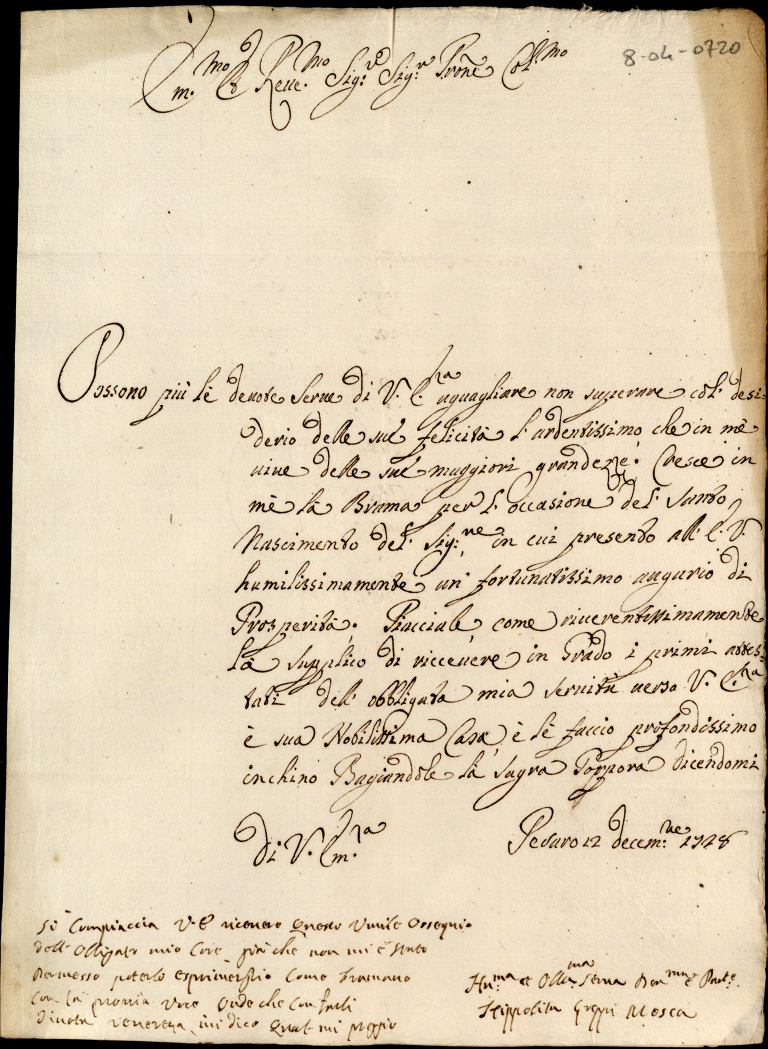 8-04-0720
Em.mo e Reue.mo Sig.r Sig.r Prone Col.mo
Possono più le deuote Serue di V. E.za aguagliare non superare col desi-
derio delle sue felicità l'ardentissimo che in mè
uiue delle sue maggiori grandezze: Cresce in
mè la Brama per l'occasione del Santo
Nascimento del Sig:re in cui presento all'E. V.
humilissimamente un fortunatissimo augurio di
Prosperità. Piacciale come riuerentissimamente
la supplico di riceuere in Grado i primi attes-
tati dell'obbligata mia seruitù uerso V. E.za
è sua Nobilissima Casa, è le faccio profondissimo
inchino Bagiandole la sagra Porpora dicendomi
di V. Em.za
Pesaro 12 decem.re 1728
Si Compiaccia V. E. riceuere questo Vmile Ossequio
dell'Obligato mio Core già che non mi è stato
permesso poterlo esprimerglio Come bramauo
con la propria Voce Onde che con
diuota reuerenza mi dico qual mi preggio
Hu:ma et Obb:ma Serua
Hippolita Greppi Mosca